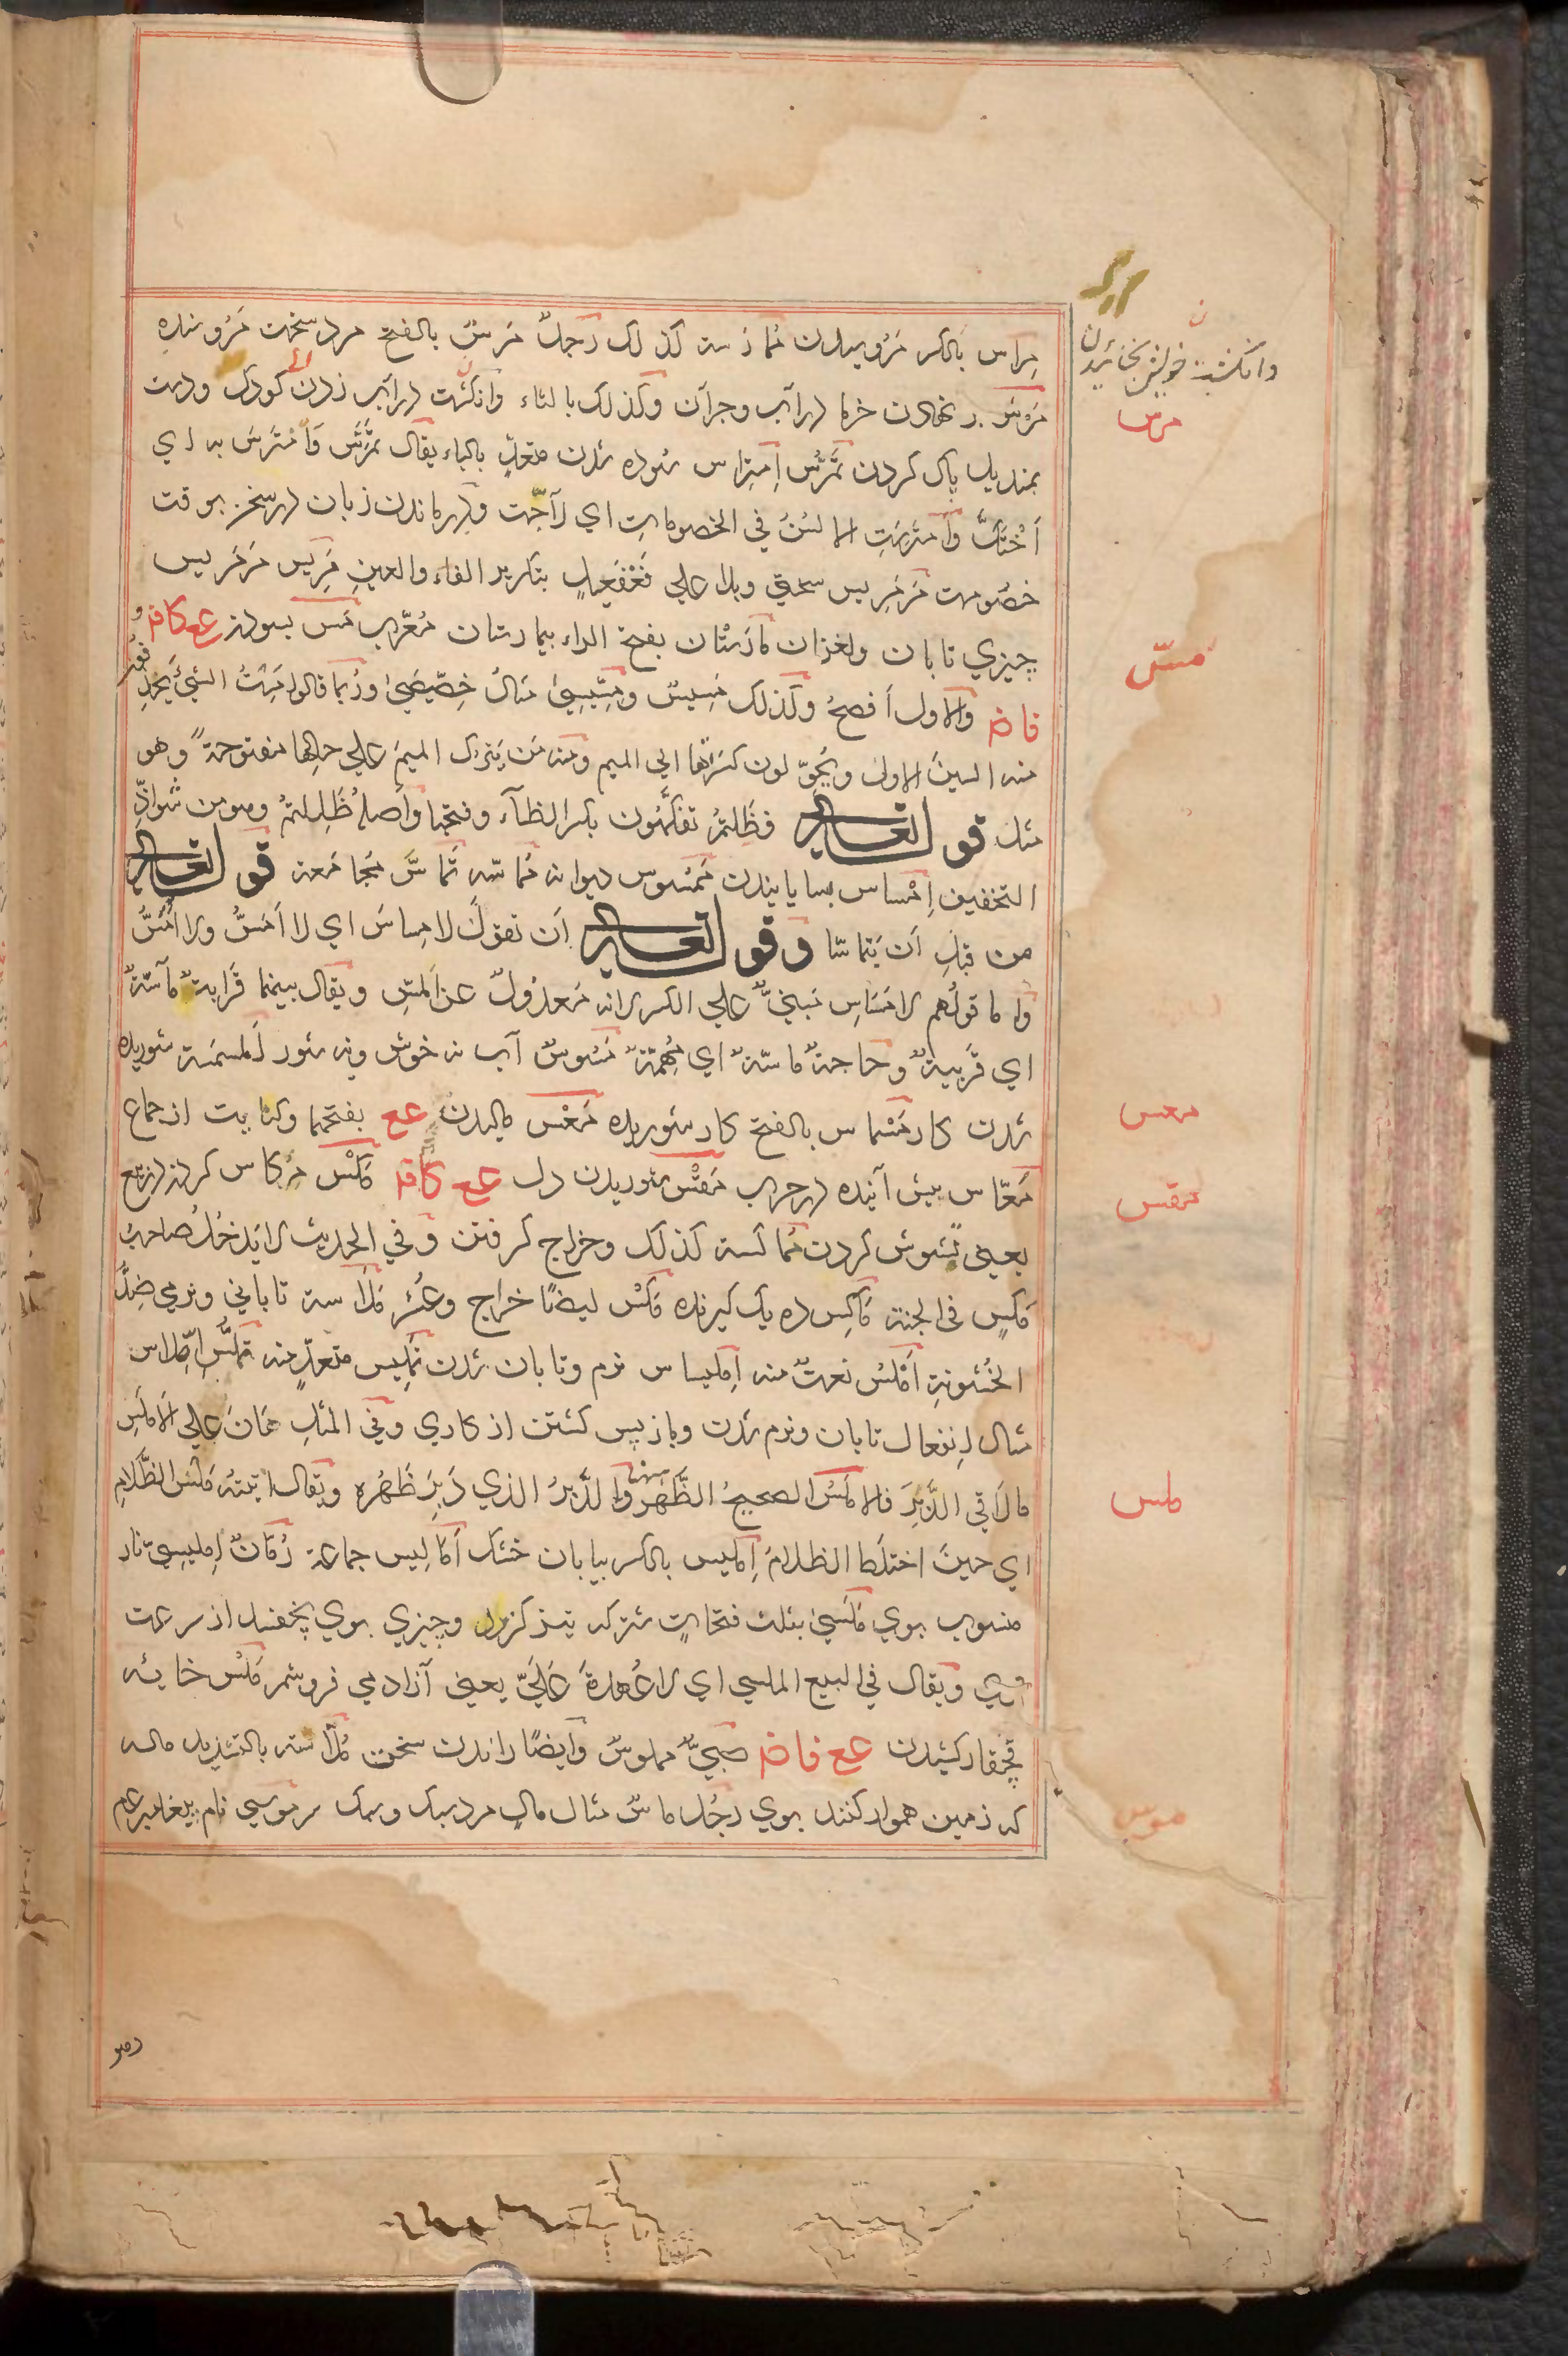 وانکشت خویش بخائیدن
مِراس بالکسر مَروسیدن مُمارَسة کذلک رَجلٌ مَرِسٌ بالفتح مرد سخت مَروسنده
مَرْس در نهادن خرما در آب وجز آن وکذلک بالثاء وانکشت در آب زدن کودک ودست
مرس
بمندیل پاک کردن تَمَرُّس اِمتِراس سُوده شدن متعدٍّ بالباء یقال تَمَرَّسَ وَاَمْتَرَسَ به ای
اَحْتَکَّ وَاَمتَرَسَتِ الالسُنُ في الخصوماتِ اي لاَجَّت ودِر ماندن زبان در سخن بوقت
خصومت مَرمَرِیس سختی وبلا علي فَعْفَعِیلٍ بتکریر الفاء والعینِ مَرِیس مَرمَرِیس
چیزي تابان ولغزان مارَسْتان بفتح الراء بیمارستان مُعَرّب مَسّ بسودن عع کافه و
مسّ
فاضه والاول اَفصحُ وکذلک مَسِیسٌ ومِسِّیسیٰ مثالُ خِصِّیصیٰ ورُبَما قالوا مِسْتُ الشيءَ یَحذِفون
منه السینَ الاولیٰ ویُحَوِّلون کَسرَتَها الی المیم ومنه مَن یَترُک المیمَ علي حالِها مفتوحةً وهو
مثل قوله تعالی فظَلتُم تفکَّهون بکسر الظآء وفتحها واَصلُه ظَلِلتُم وهو من شواذِّ
التخفیف اِمْساس بسایانیدن مَمسُوس دیوانه مُماسّه تَماسّ مُجامَعة قوله تعالی
من قبلِ اَن یَتَماسّا وقوله تعالی اَن تقولَ لا مِساسَ اي لا اَمَسُّ ولا اُمَسُّ
واما قولُهم لا مَسَاسِ مَبنيٌّ علي الکسر لانه مَعدُولٌ عن المَسِّ ویقال بینهما قَرابةٌ ماَسّةٌ
اي قَریبةٌ وحاجةٌ ماسّةٌ اي مُهِمّةٌ مَسُوسٌ آب نه خوش ونه شور مَسمَسة شوریده
شدن کار مَسْماس بالفتح کار شوریده مَعْس مالیدن عع بفتحهما وکنایت از جماع
معس
مَعّاس پیش آینده در حرب مَقْس شوریدن دل عع کافه مَکْس مِکاس کردن در بیع
مقس
یعني تشوش کردن مُماکَسة کذلک وخراج کرفتن وفي الحدیث لا یَدخُلُ صاحبُ
مَکسٍ في الجنة مَاکِس ده یک کیرنده مَکْس ایضًا خراج وعُشر مَلاسة تاباني ونرمي ضِدُّ
الخُشونةِ اَمْلَسُ نعتٌ منه اِملیساس نرم وتابان شدن تَملِیس متعدٍّ منه تملُّس اِمِّلاس
مثال اِنفعال تابان ونرم شدن وباز پس کشتن از کاري وفي المثلِ هَانَ علي الاَملَسِ
ما لاَقي الدَّبِرَ فالاملَسُ الصحیحُ الظَّهْرِ والدَّبِرُ الذي دَبِرَ ظَهْرُه ویقال اتیتُه مَلَسَ الظَّلامِ
ملس
اي حینَ اختلَطَ الظلامُ اِملیس بالکسر بیابان خشک اَمالیس جماعة رُمّانٌ اِملیسيّ نار
منسوب بوي مَلَسیٰ بثلث فتحاتٍ شتر که تیز کزرد وچیزي بوي نچفسد از سرعت
وي ویقال في البیع الملسي اي لا عُهدةَ عَلَيّ یعني آزاد مي فروشم مَلْس خایه
قچقار کشیدن عع فاضه صبيٌّ مملوسٌ وایضًا راندن سخت مَلّاسة بالتشدید ماله
که زمین هموار کنند بوي رجُل ماسٌ مثال مالٍ مرد سبک وسبک سر موسي نام پیغامبر عم
موس